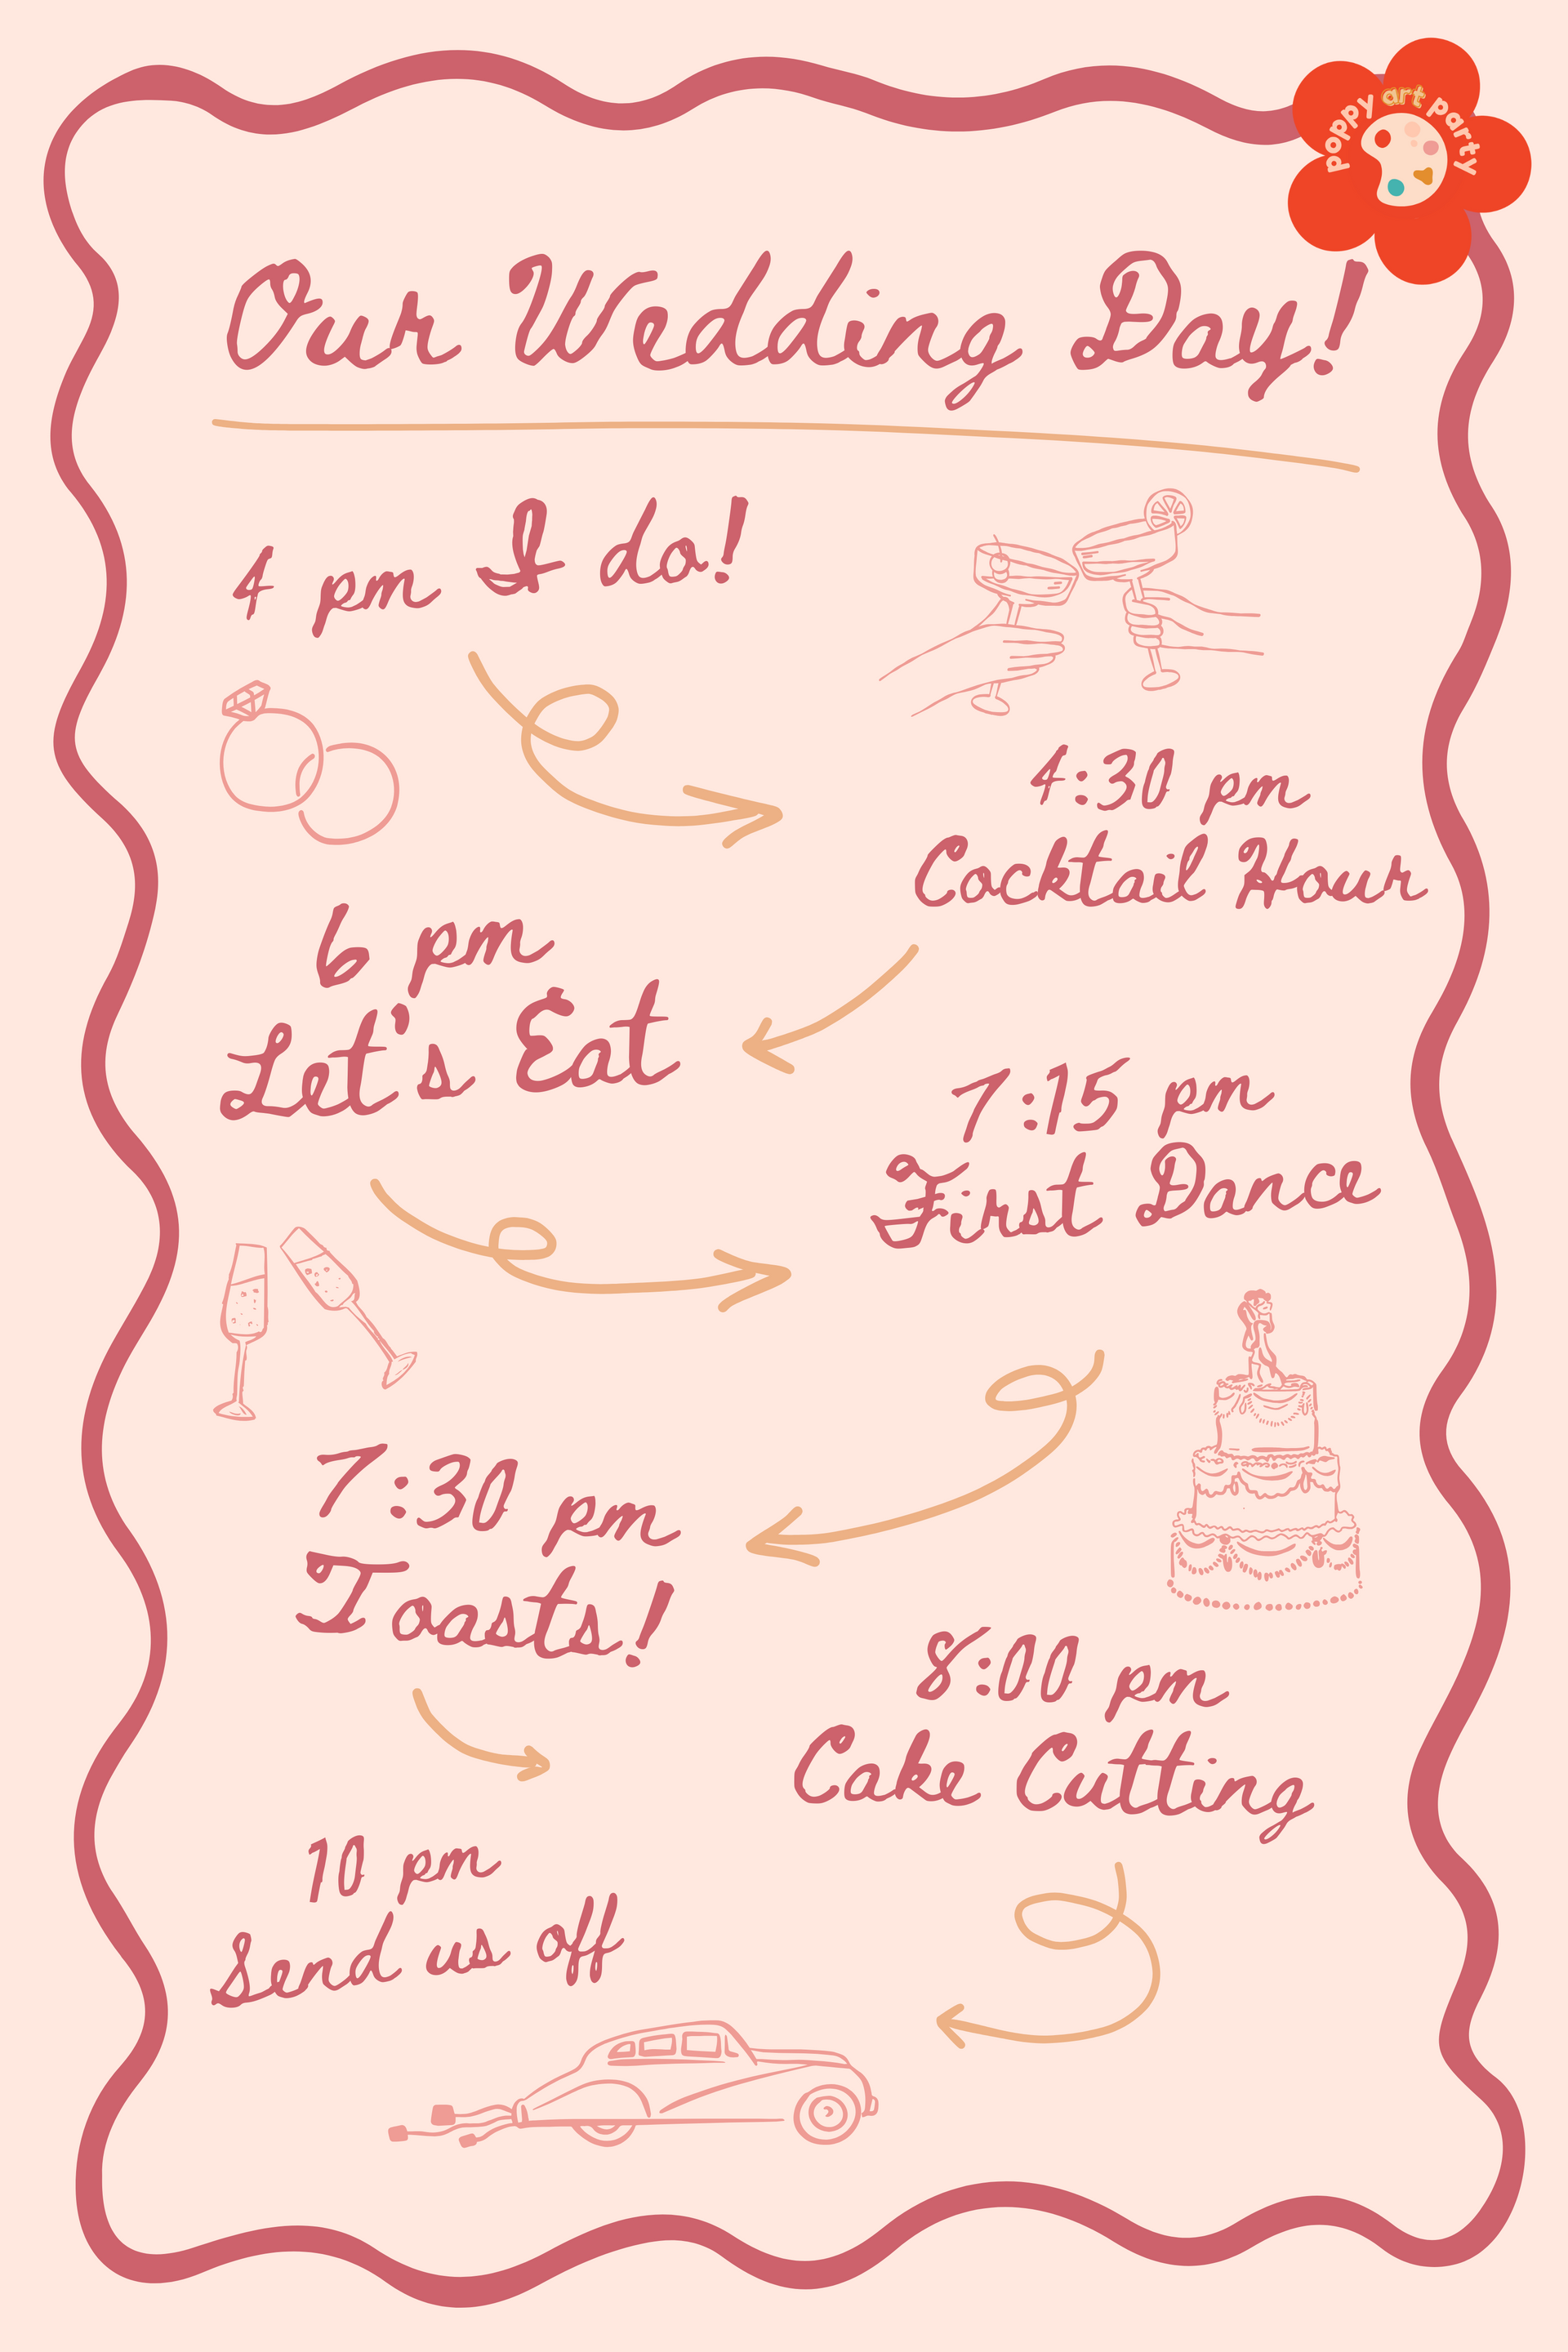 poppy art party
Our Wedding Day!
4 pm I do!
4:30 pm
Cocktail Hour
6 pm
Let's Eat
7:15 pm
First Dance
7:30 pm
Toasts!
8:00 pm
Cake Cutting
10 pm
Send us off